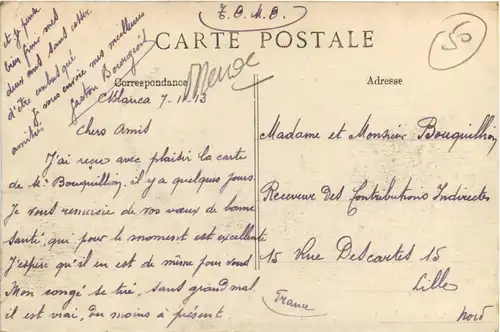 T.C.M.B.
50
CARTE POSTALE
Correspondance
Adresse
Cblanca 7. 1. 13
Chers Amis
J'ai reçue avec plaisir la carte
de Mr Bouquillion, il y a quelques jours.
Je vous remercie de vos vœux de bonne
santé, qui pour le moment est excellente
J'espère qu'il en est de même pour vous
Mon congé se tire, sans grand mal
il est vrai, du moins à présent.
et j'y pense
bien fini mes
deux ans sans cette
d'être embusqué
Je vous envoie mes meilleures
amitiés
Gaston Bourgeois
Madame et Monsieur Bouquillion
Receveur des Contributions Indirectes
15 Rue Descartes 15
Lille
Nord
France